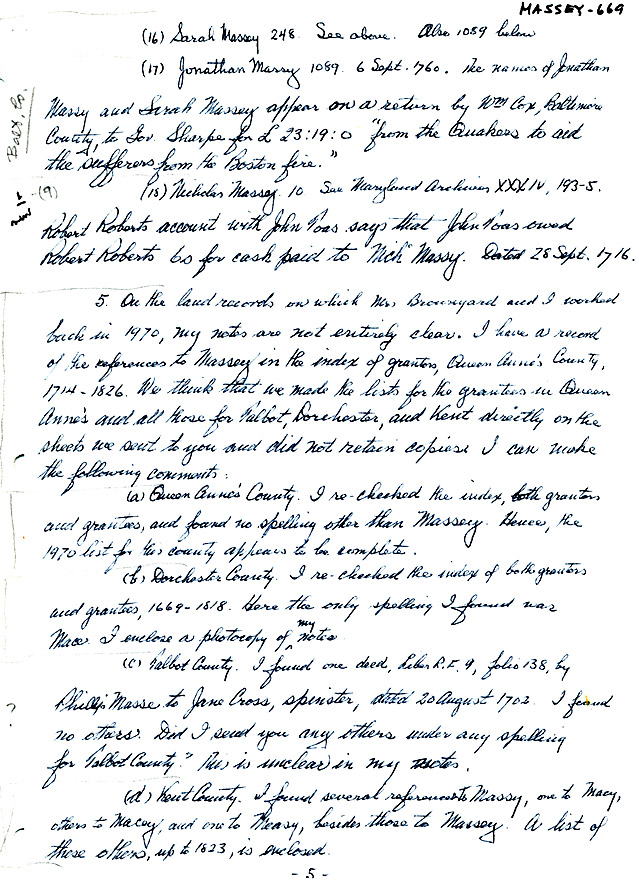 MASSEY-669
(16) Sarah Massey 248. See above. Also 1089 below
(17) Jonathan Massy 1089. 6 Sept. 1760. The names of Jonathan
Massy and Sarah Massey appear on a return by Wm Cox, Baltimore
County, to Gov. Sharpe for £ 23:19:0 "from the Quakers to aid
the sufferers from the Boston fire."
Balt. Co.
(9)
(18) Nicholas Massey 10 See Maryland Archives XXXIV, 193-5.
Robert Roberts account with John Voas says that John Voas owed
Robert Roberts 6s for cash paid to "Nich" Massy. Dated 28 Sept. 1716.
5. On the land records on which Mrs Brownyard and I worked
back in 1970, my notes are not entirely clear. I have a record
of the references to Massey in the index of grantors, Queen Anne's County,
1714-1826. We think that we made the lists for the grantees in Queen
Anne's and all those for Talbot, Dorchester, and Kent directly on the
sheets we sent to you and did not retain copies. I can make
the following comments:
(a) Queen Anne's County. I re-checked the index, both grantors
and grantees, and found no spelling other than Massey. Hence, the
1970 list for this county appears to be complete.
(b) Dorchester County. I re-checked the index of both grantors
and grantees, 1669-1818. Here the only spelling I found was
Mace. I enclose a photocopy of my notes.
(c) Talbot County. I found one deed, Liber R.F. 9, folio 138, by
Phillip Masse to Jane Cross, spinster, dated 20 August 1702. I found
no others. Did I send you any others under any spelling
for Talbot County? This is unclear in my notes.
(d) Kent County. I found several references to Massy, one to Macy,
others to Macey, and one to Measy, besides those to Massey. A list of
these others, up to 1823, is enclosed.
- 5 -